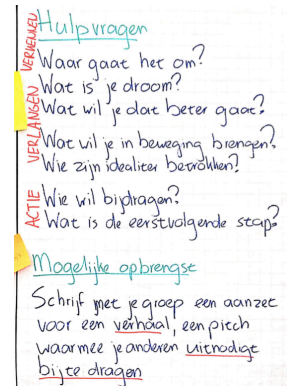 Hulpvragen
VERKENNEN
Waar gaat het om?
Wat is je droom?
Wat wil je dat beter gaat?
VERLANGEN
Wat wil je in beweging brengen?
Wie zijn idealiter betrokken?
ACTIE
Wie wil bijdragen?
Wat is de eerstvolgende stap?
Mogelijke opbrengst
Schrijf met je groep een aanzet
voor een verhaal, een pitch
waarmee je anderen uitnodigt
bij te dragen